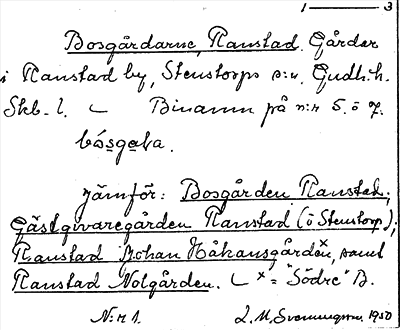 1 —— 3
Bosgårdarne, Ranstad. Gårdar
i Ranstad by, Stenstorps s:n, Gudh. h.
Skb. l. Binamn på n:r 5. o 7.
bósgaɫa.
Jämför: Bosgården Ranstad;
Gästgivaregården Ranstad (o Stenstorp);
Ranstad Johan Håkansgården,ˣ samt
Ranstad Nolgården. ˣ = "Södre" B.
N:r 1. L. M. Svenungsson 1950